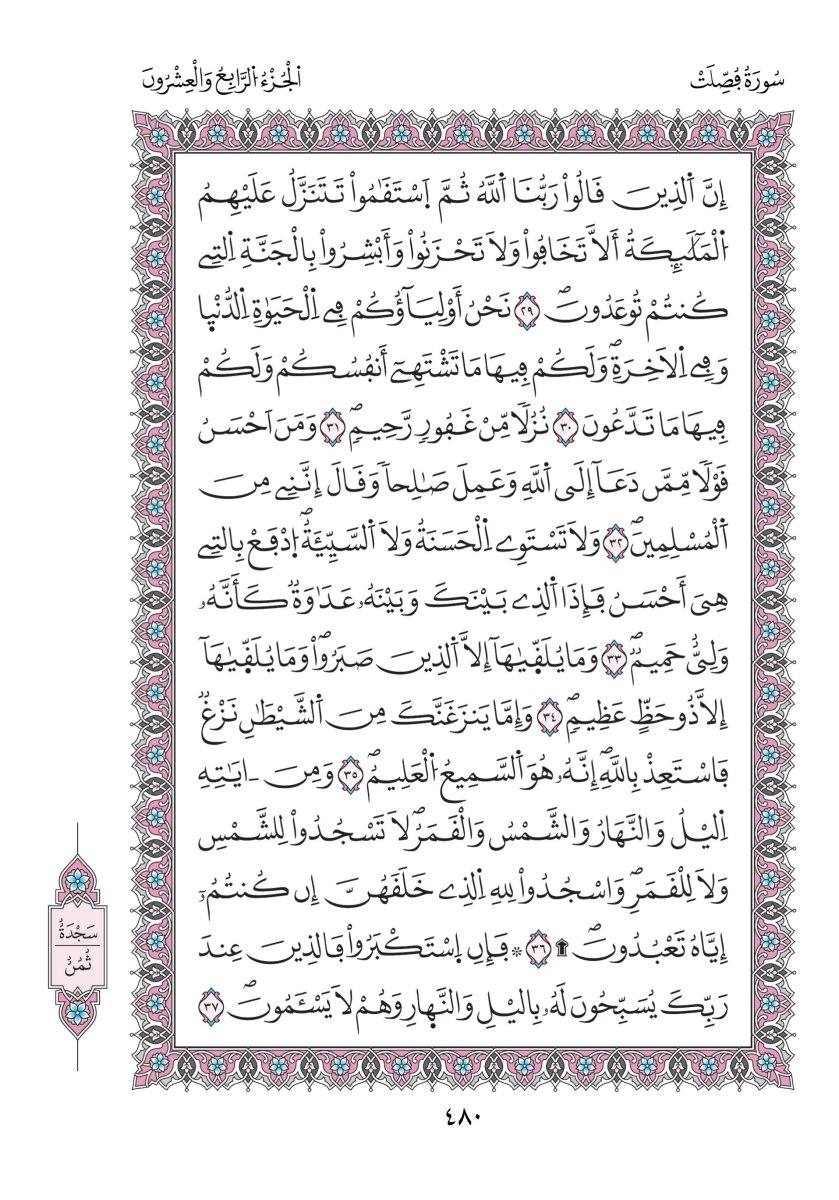 سُورَةُ فُصِّلَتْ
اَلْجُزْءُ اَلرَّابِعُ وَالْعِشْرُونَ
إِنَّ اَ۬لذِينَ قَالُواْ رَبُّنَا اَ۬للَّهُ ثُمَّ اَ۪سْتَقَٰمُواْ تَتَنَزَّلُ عَلَيْهِمُ
اُ۬لْمَلَٰٓئِكَةُ أَلَّا تَخَافُواْ وَلَا تَحْزَنُواْ وَأَبْشِرُواْ بِالْجَنَّةِ اِ۬لتِے
كُنتُمْ تُوعَدُونَۖ ٢٩ نَحْنُ أَوْلِيَآؤُكُمْ فِے اِ۬لْحَيَوٰةِ اِ۬لدُّنْي۪ا
وَفِے اِ۬لَاخِرَةِۖ وَلَكُمْ فِيهَا مَا تَشْتَهِےٓ أَنفُسُكُمْ وَلَكُمْ
فِيهَا مَا تَدَّعُونَ ٣٠ نُزُلاٗ مِّنْ غَفُورٖ رَّحِيمٖۖ ٣١ وَمَنَ اَحْسَنُ
قَوْلاٗ مِّمَّن دَعَآ إِلَى اَ۬للَّهِ وَعَمِلَ صَٰلِحاٗ وَقَالَ إِنَّنِے مِنَ
اَ۬لْمُسْلِمِينَۖ ٣٢ وَلَا تَسْتَوِے اِ۬لْحَسَنَةُ وَلَا اَ۬لسَّيِّئَةُۖ اُ۪دْفَعْ بِالتِے
هِيَ أَحْسَنُ فَإِذَا اَ۬لذِے بَيْنَكَ وَبَيْنَهُۥ عَدَٰوَةٞ كَأَنَّهُۥ
وَلِيٌّ حَمِيمٞۖ ٣٣ وَمَا يُلَقّ۪يٰهَآ إِلَّا اَ۬لذِينَ صَبَرُواْۖ وَمَا يُلَقّ۪يٰهَآ
إِلَّا ذُو حَظٍّ عَظِيمٖۖ ٣٤ وَإِمَّا يَنزَغَنَّكَ مِنَ اَ۬لشَّيْطَٰنِ نَزْغٞ
فَاسْتَعِذْ بِاللَّهِۖ إِنَّهُۥ هُوَ اَ۬لسَّمِيعُ اُ۬لْعَلِيمُۖ ٣٥ وَمِنَ اٰيَٰتِهِ
اِ۬ليْلُ وَالنَّهَارُ وَالشَّمْسُ وَالْقَمَرُۖ لَا تَسْجُدُواْ لِلشَّمْسِ
وَلَا لِلْقَمَرِۖ وَاسْجُدُواْ لِلهِ اِ۬لذِے خَلَقَهُنَّ إِن كُنتُمُۥٓ
إِيَّاهُ تَعْبُدُونَۖ ۩ ٣٦ * فَإِنِ اِ۪سْتَكْبَرُواْ فَالذِينَ عِندَ
رَبِّكَ يُسَبِّحُونَ لَهُۥ بِاليْلِ وَالنَّه۪ارِ وَهُمْ لَا يَسْـَٔمُونَۖ ٣٧
سَجْدَةٌ
ثُمُنُ
٤٨٠